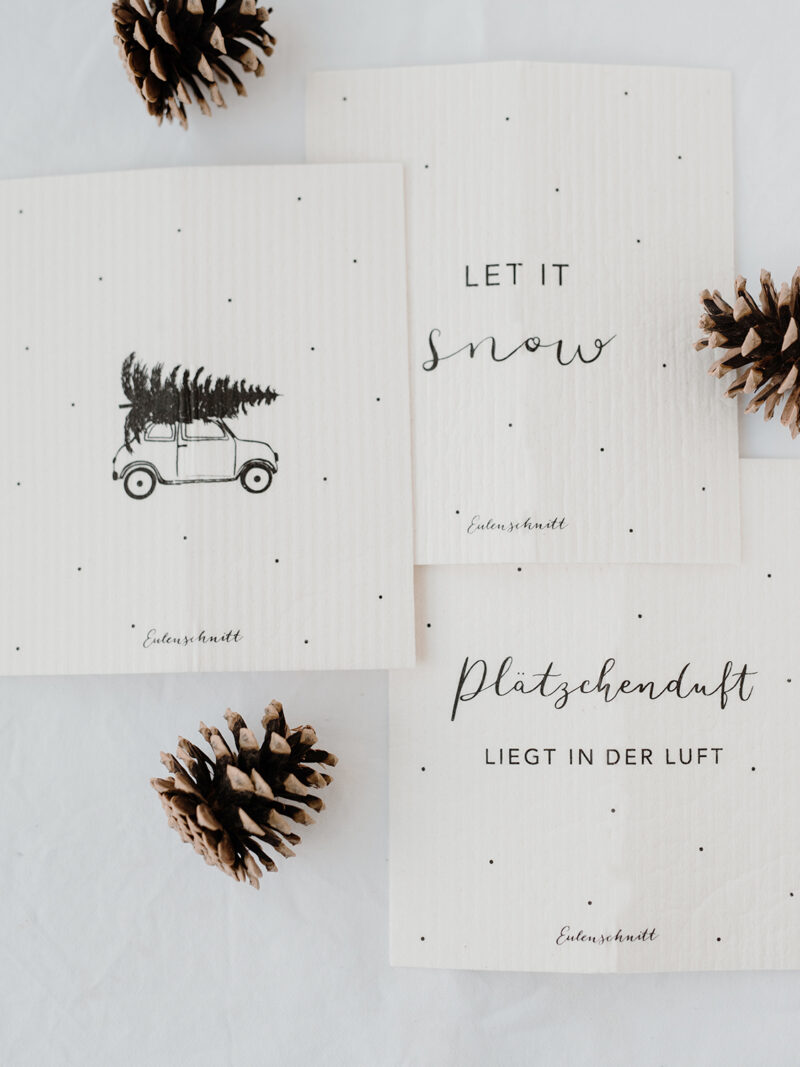 LET IT
snow
Eulenschnitt
Eulenschnitt
Plätzchenduft
LIEGT IN DER LUFT
Eulenschnitt